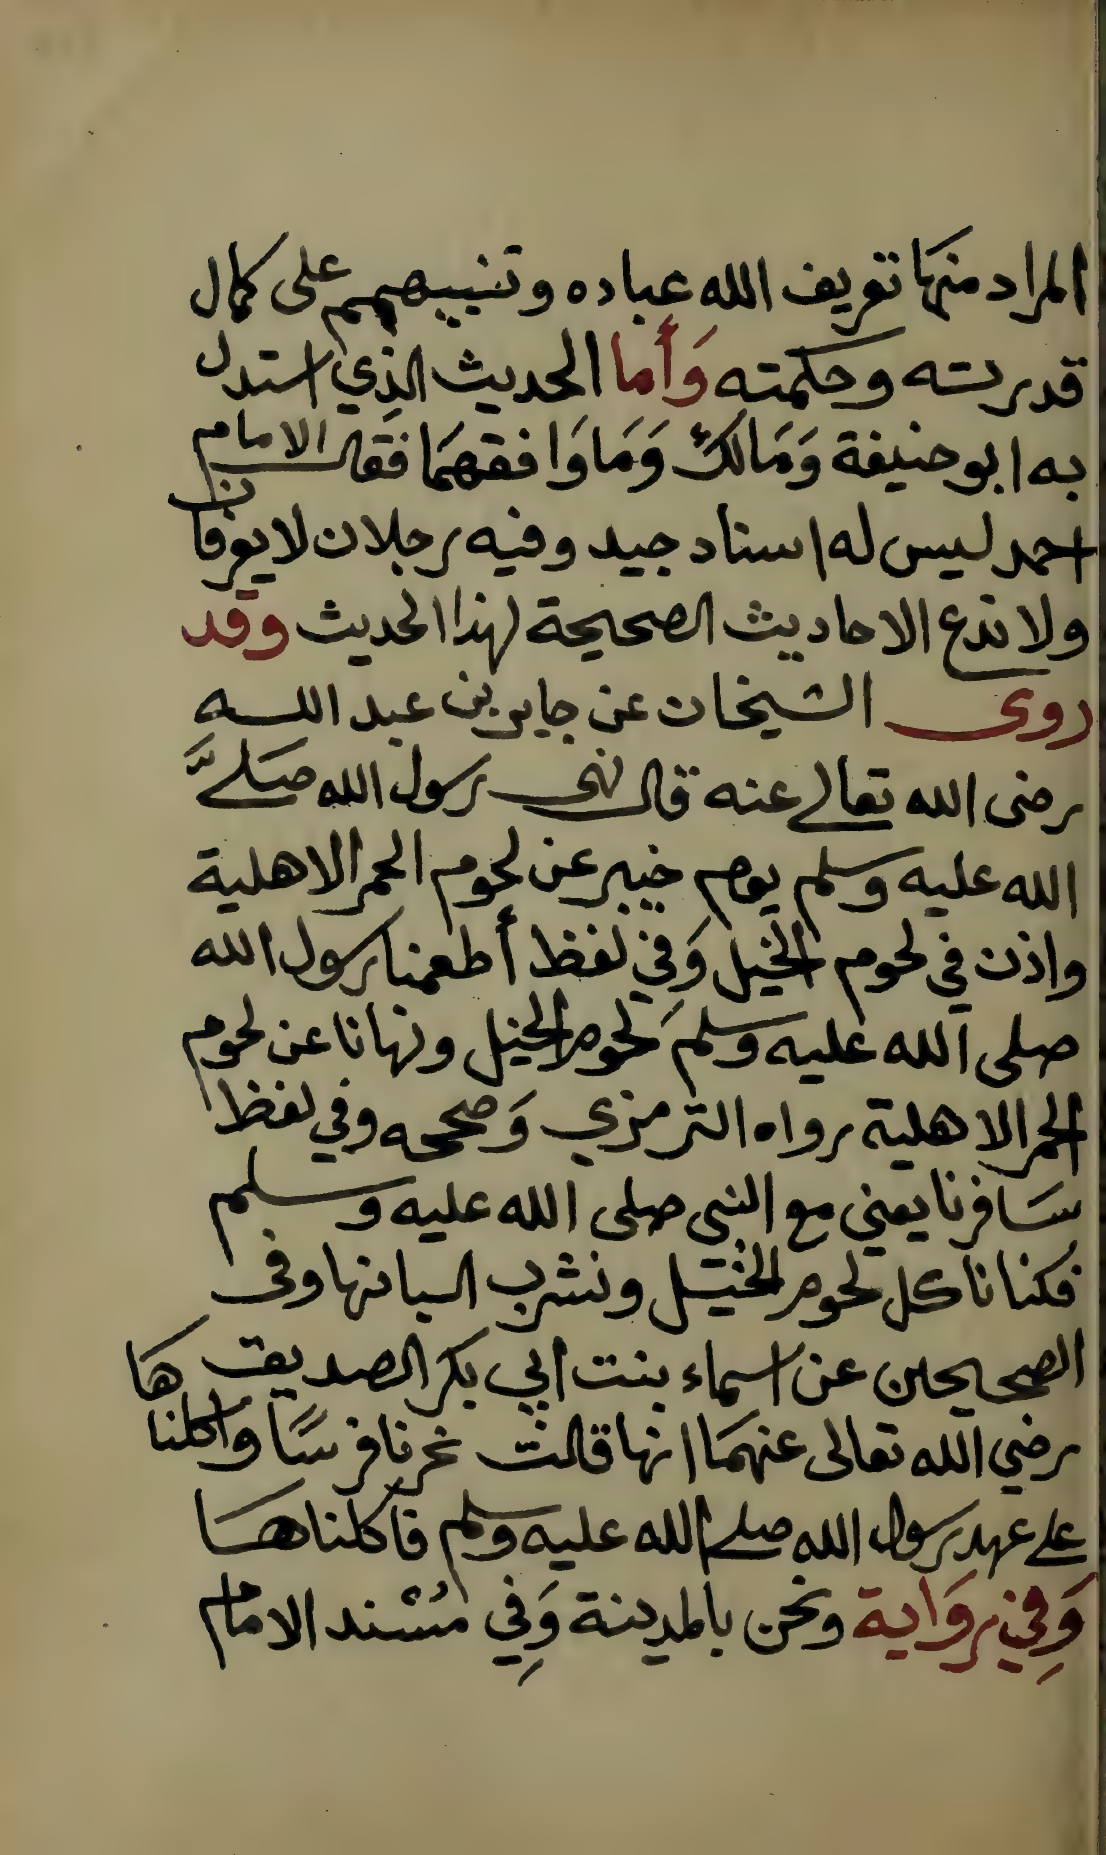 المراد منها تعريف الله عباده وتنبيههم على كمال
قدرته وحكمته وَأما الحديث الذي استدل
به ابو حنيفة وَمَالك وَمَا وَافقهمَا فقال الامام
احمد ليس له اسناد جيد وفيه رجلان لا يعرفان
ولا ندع الاحاديث الصحيحة لهذا الحديث وقد
روى الشيخان عن جابر بن عبد الله
رضى الله تعالى عنه قال نهى رسول الله صَلىَّ
الله عليه وسلم يوم خيبر عن لحوم الحمر الاهلية
واذن في لحوم الخيل وَفي لفظ أطعمنا رسول الله
صلى الله عليه وسلم لحوم الخيل ونهانا عن لحوم
الحمر الاهلية رواه الترمزي وَصححه وفي لفظ
سَافرنا يعني مع النبى صلى الله عليه وسلم
فكنا ناكل لحوم الخيل ونشرب البانها وفى
الصحيحين عن اسماء بنت ابي بكر الصديق
رضي الله تعالى عنهمَا انها قالت نحرنا فرسًا واكلناهَا
على عهد رسول الله صلى الله عليه وسلم فاكلناها
وَفِي روَاية ونحن بالمدينة وَفِي مسْند الامام